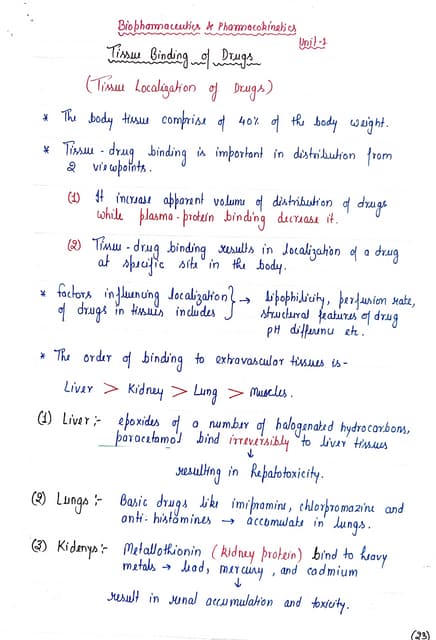 Biopharmaceutics & Pharmacokinetics
Unit-1
Tissue Binding of Drugs
(Tissue Localization of Drugs)
* The body tissue comprise of 40% of the body weight.
* Tissue-drug binding is important in distribution from
2 viewpoints.
(1) It increase apparent volume of distribution of drugs
while plasma-protein binding decrease it.
(2) Tissue-drug binding results in localization of a drug
at specific site in the body.
* factors influencing localization } → lipophilicity, perfusion rate,
of drugs in tissues includes structural features of drug
pH difference etc.
* The order of binding to extravascular tissues is-
Liver > Kidney > Lung > Muscles.
(1) Liver:- epoxides of a number of halogenated hydrocarbons,
paracetamol bind irreversibly to liver tissues
↓
resulting in Hepatotoxicity.
(2) Lungs:- Basic drugs like imipramine, chlorpromazine and
anti-histamines → accumulate in lungs.
(3) Kidenys:- Metallothionin (kidney protein) bind to heavy
metals → lead, mercury, and cadmium
↓
result in renal accumulation and toxicity.
(23)